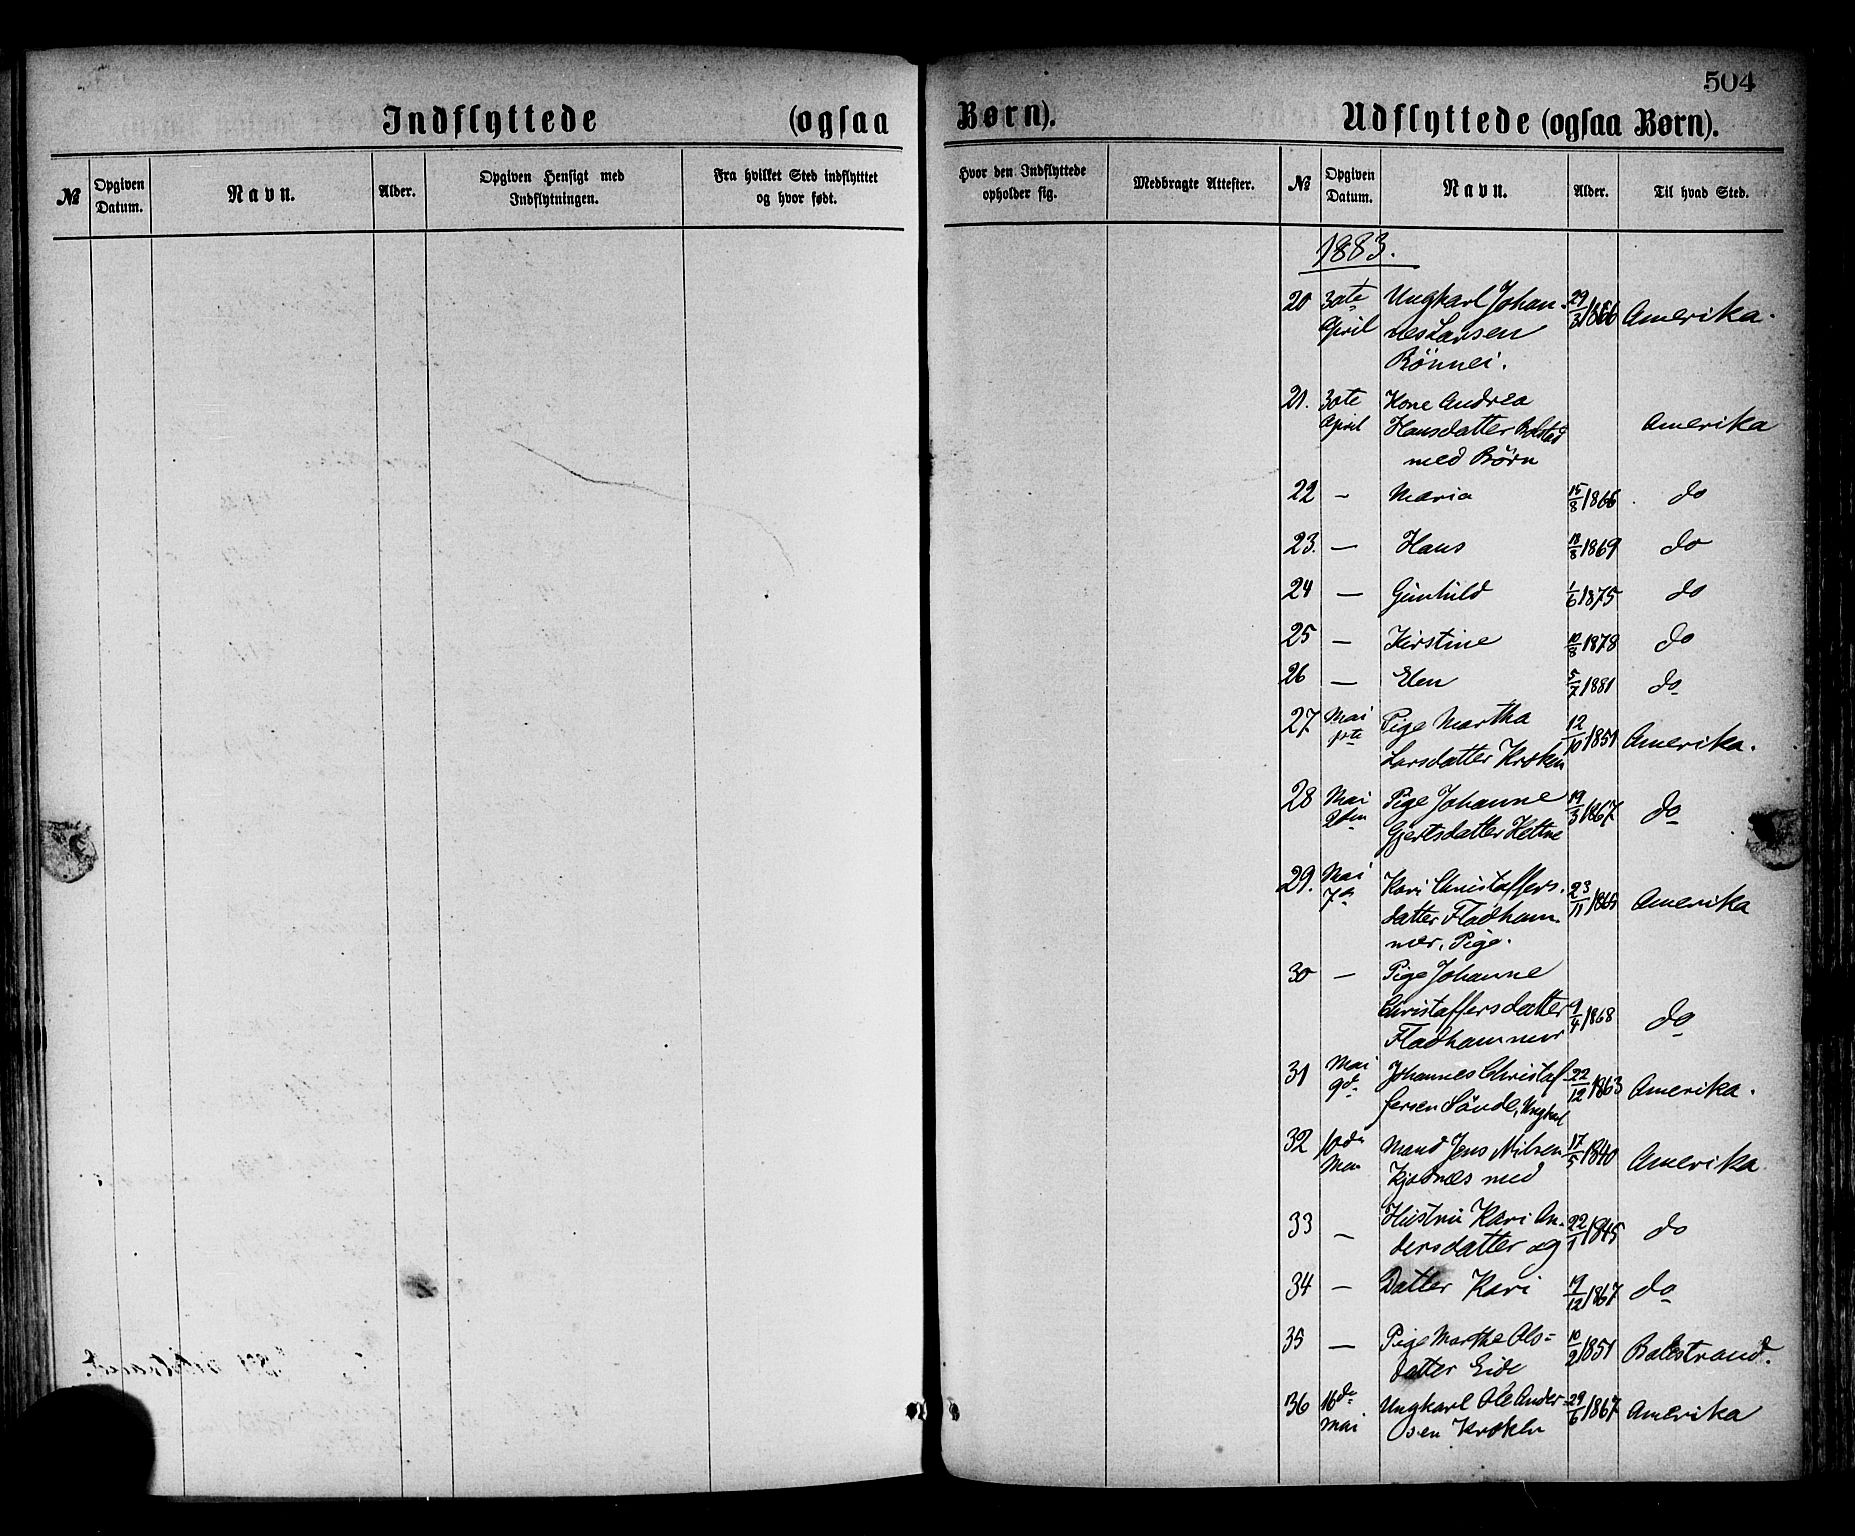 504
Indflyttede (ogsaa Børn).
Udflyttede (ogsaa Børn).
№ Opgiven Datum. Navn. Alder. Opgiven Hensigt med Indflytningen. Fra hvilket Sted indflytttet og hvor født.
Hvor den Indflyttede opholder sig. Medbragte Attester. № Opgiven Datum. Navn. Alder. Til hvad Sted.
1883.
20 30te Ungkarl Johan- 29/3 1866 Amerika.
April nes Larsen
Rönnei.
21. 30te Kone Andrea
April Hansdatter Bolstad Amerika
med Börn
22 - Maria 15/8 1866 do
23. - Hans 18/8 1869 do
24 - Gunhild 1/6 1875 do
25 - Kirstine 10/8 1878 do
26 - Elen 5/7 1881 do
27 Mai Pige Martha 12/10 1851 Amerika.
1ste Larsdatter Kroken
28 Mai Pige Johanne 19/3 1867 do
2den Gjertsdatter Hettne
29. Mai Kari Christaffers- 23/11 1865 Amerika
7de datter Fladham-
mer, Pige.
30 - Pige Johanne
Christaffersdatter 9/4 1868 do
Fladhammer
31 Mai Johannes Christaf- 22/12 1863 Amerika.
9de fersen Sande, Ungkarl
32 10de Mand Jens Nilsen 17/5 1840 Amerika
Mai med
33 - Hustru Kari An- 22/1 1845 do
dersdatter og
34 - Datter Kari 19/12 1867 do
35 - Pige Marthe Ols- 10/2 1851 Balestrand.
datter Eide
36 16de Ungkarl Ole Ander- 29/6 1867 Amerika
Mai sen Kroken